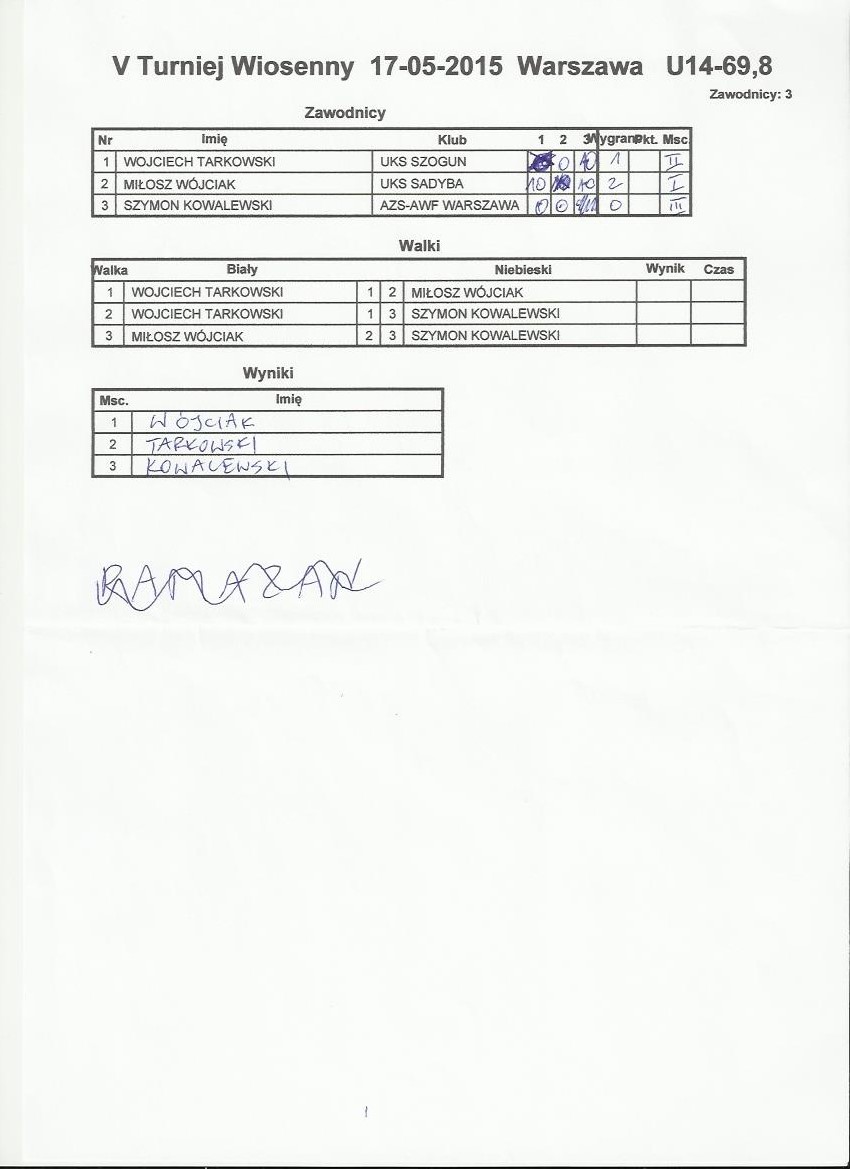 V Turniej Wiosenny 17-05-2015 Warszawa U14-69,8
Zawodnicy: 3
Zawodnicy
Nr Imię Klub 1 2 3 Wygrane Pkt. Msc.
1 WOJCIECH TARKOWSKI UKS SZOGUN 0 10 1 II
2 MIŁOSZ WÓJCIAK UKS SADYBA 10 10 2 I
3 SZYMON KOWALEWSKI AZS-AWF WARSZAWA 0 0 0 III
Walki
Walka Biały Niebieski Wynik Czas
1 WOJCIECH TARKOWSKI 1 2 MIŁOSZ WÓJCIAK
2 WOJCIECH TARKOWSKI 1 3 SZYMON KOWALEWSKI
3 MIŁOSZ WÓJCIAK 2 3 SZYMON KOWALEWSKI
Wyniki
Msc. Imię
1 WÓJCIAK
2 TARKOWSKI
3 KOWALEWSKI
RAMAZAN
1